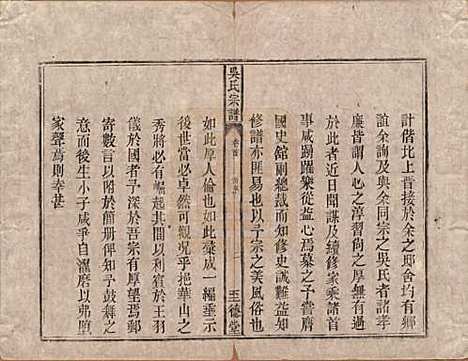 計偕比上晉接於余之邸舍均有鄉
誼余詢及與余同宗之吳氏者諸孝
廉皆謂人心之淳習尚之厚無有過
於此者近日聞謀及續修家乘諸執
事咸踴躍樂從益心焉慕之予嘗膺
國史館副總裁而知修史誠難益知
修譜亦匪易也以予宗之美風俗也
吳氏宗譜
卷首
二
至德堂
如此厚人倫也如此彙成一編垂示
後世當必卓然可觀況乎挹華山之
秀將必有崛起其間以利於王羽
儀於國者予深於吾宗有厚望焉郵
寄數言於簡冊俾知予鼓舞之
意而後生小子咸爭自濯磨以弗墮
家聲焉則幸甚